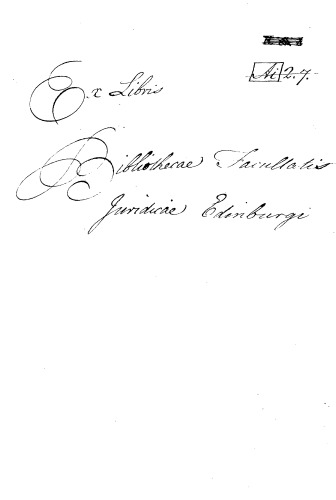 Ai 2.7.
Ex Libris
Bibliothecae Facultatis
Juridicae Edinburgi